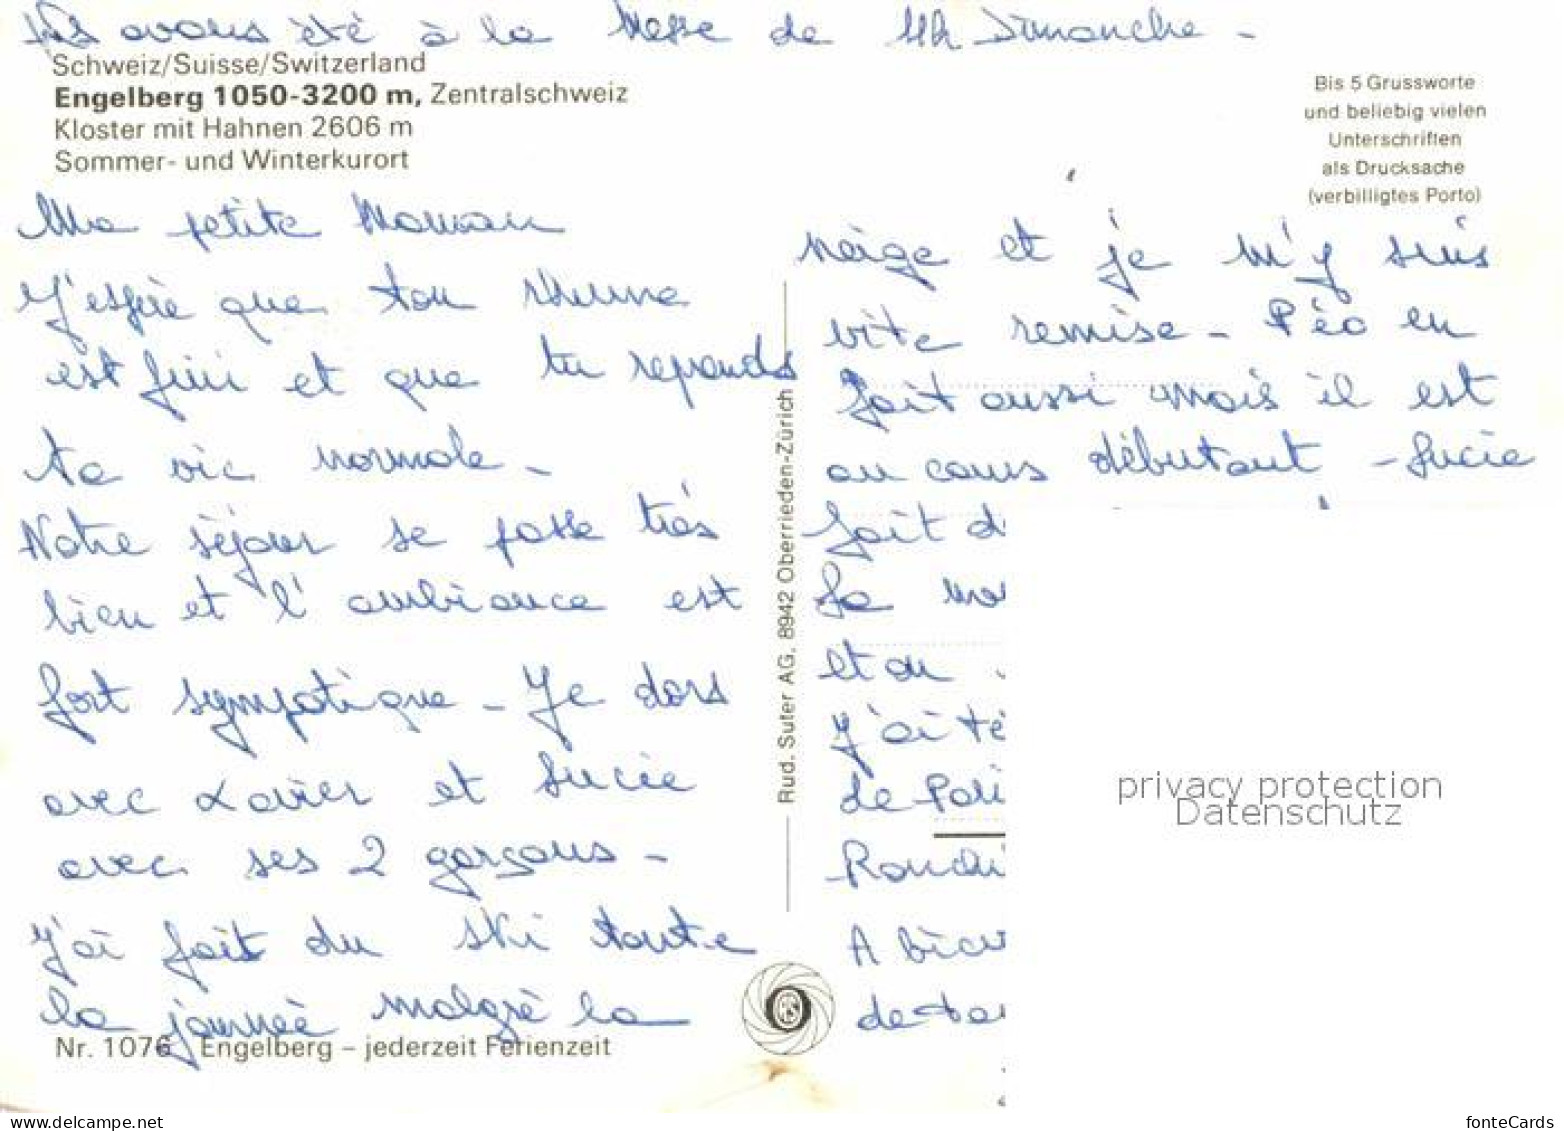 Ns avons été à la Messe de 11h Dimanche -
Schweiz/Suisse/Switzerland
Engelberg 1050-3200 m, Zentralschweiz
Kloster mit Hahnen 2606 m
Sommer- und Winterkurort
Bis 5 Grussworte
und beliebig vielen
Unterschriften
als Drucksache
(verbilligtes Porto)
Ma petite Maman
J'espère que ton rhume
est fini et que tu reprends
ta vie normale -
Notre séjour se passe très
bien et l'ambiance est
fort sympatique - Je dors
avec Xavier et Lucie
avec ses 2 garçons -
J'ai fait du ski toute
la journée malgré la
Nr. 1076 Engelberg – jederzeit Ferienzeit
Rud. Suter AG, 8942 Oberrieden-Zürich
neige et je m'y suis
vite remise - Péo en
fait aussi mais il est
au cours débutant - Lucie
fait d
et au
J'ai té
de
A bien
de
privacy protection
Datenschutz
fonteCards
www.delcampe.net